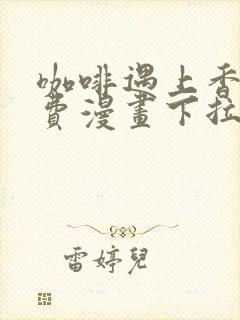 咖啡遇上香
費漫畫下拉
雷婷兒